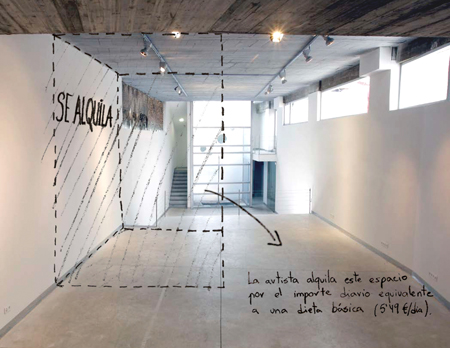 SE ALQUILA
La artista alquila este espacio
por el importe diario equivalente
a una dieta básica (5'49 €/día).